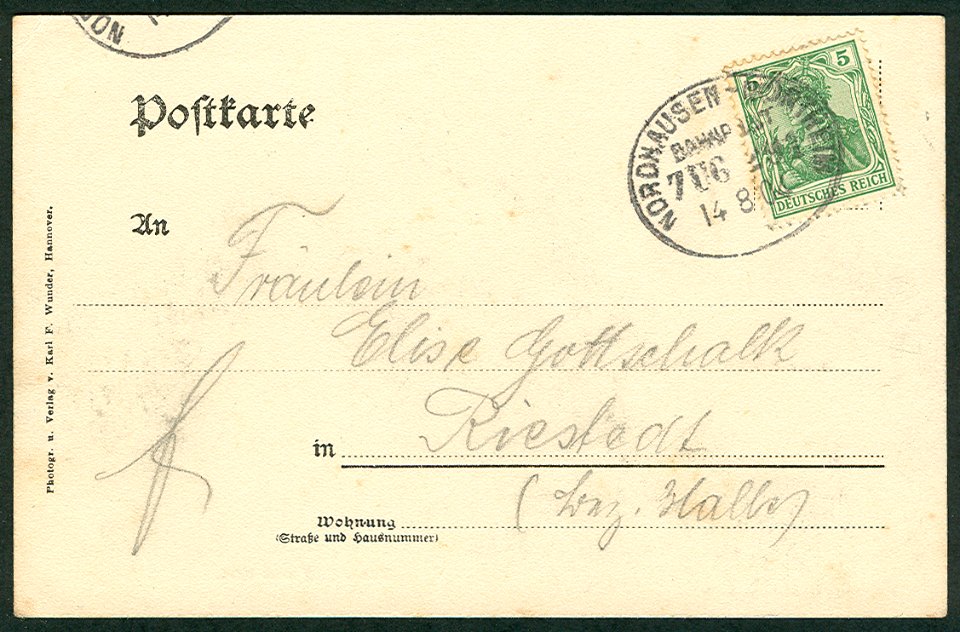 NOR
Postkarte
5 5
DEUTSCHES REICH
NORDHAUSEN - NORTHEIM
BAHNPOST
ZUG
14 8
An
Fräulein
Elise Gottschalk
in Riestedt
(Bez. Halle)
Wohnung
(Straße und Hausnummer)
Photogr. u. Verlag v. Karl F. Wunder, Hannover.